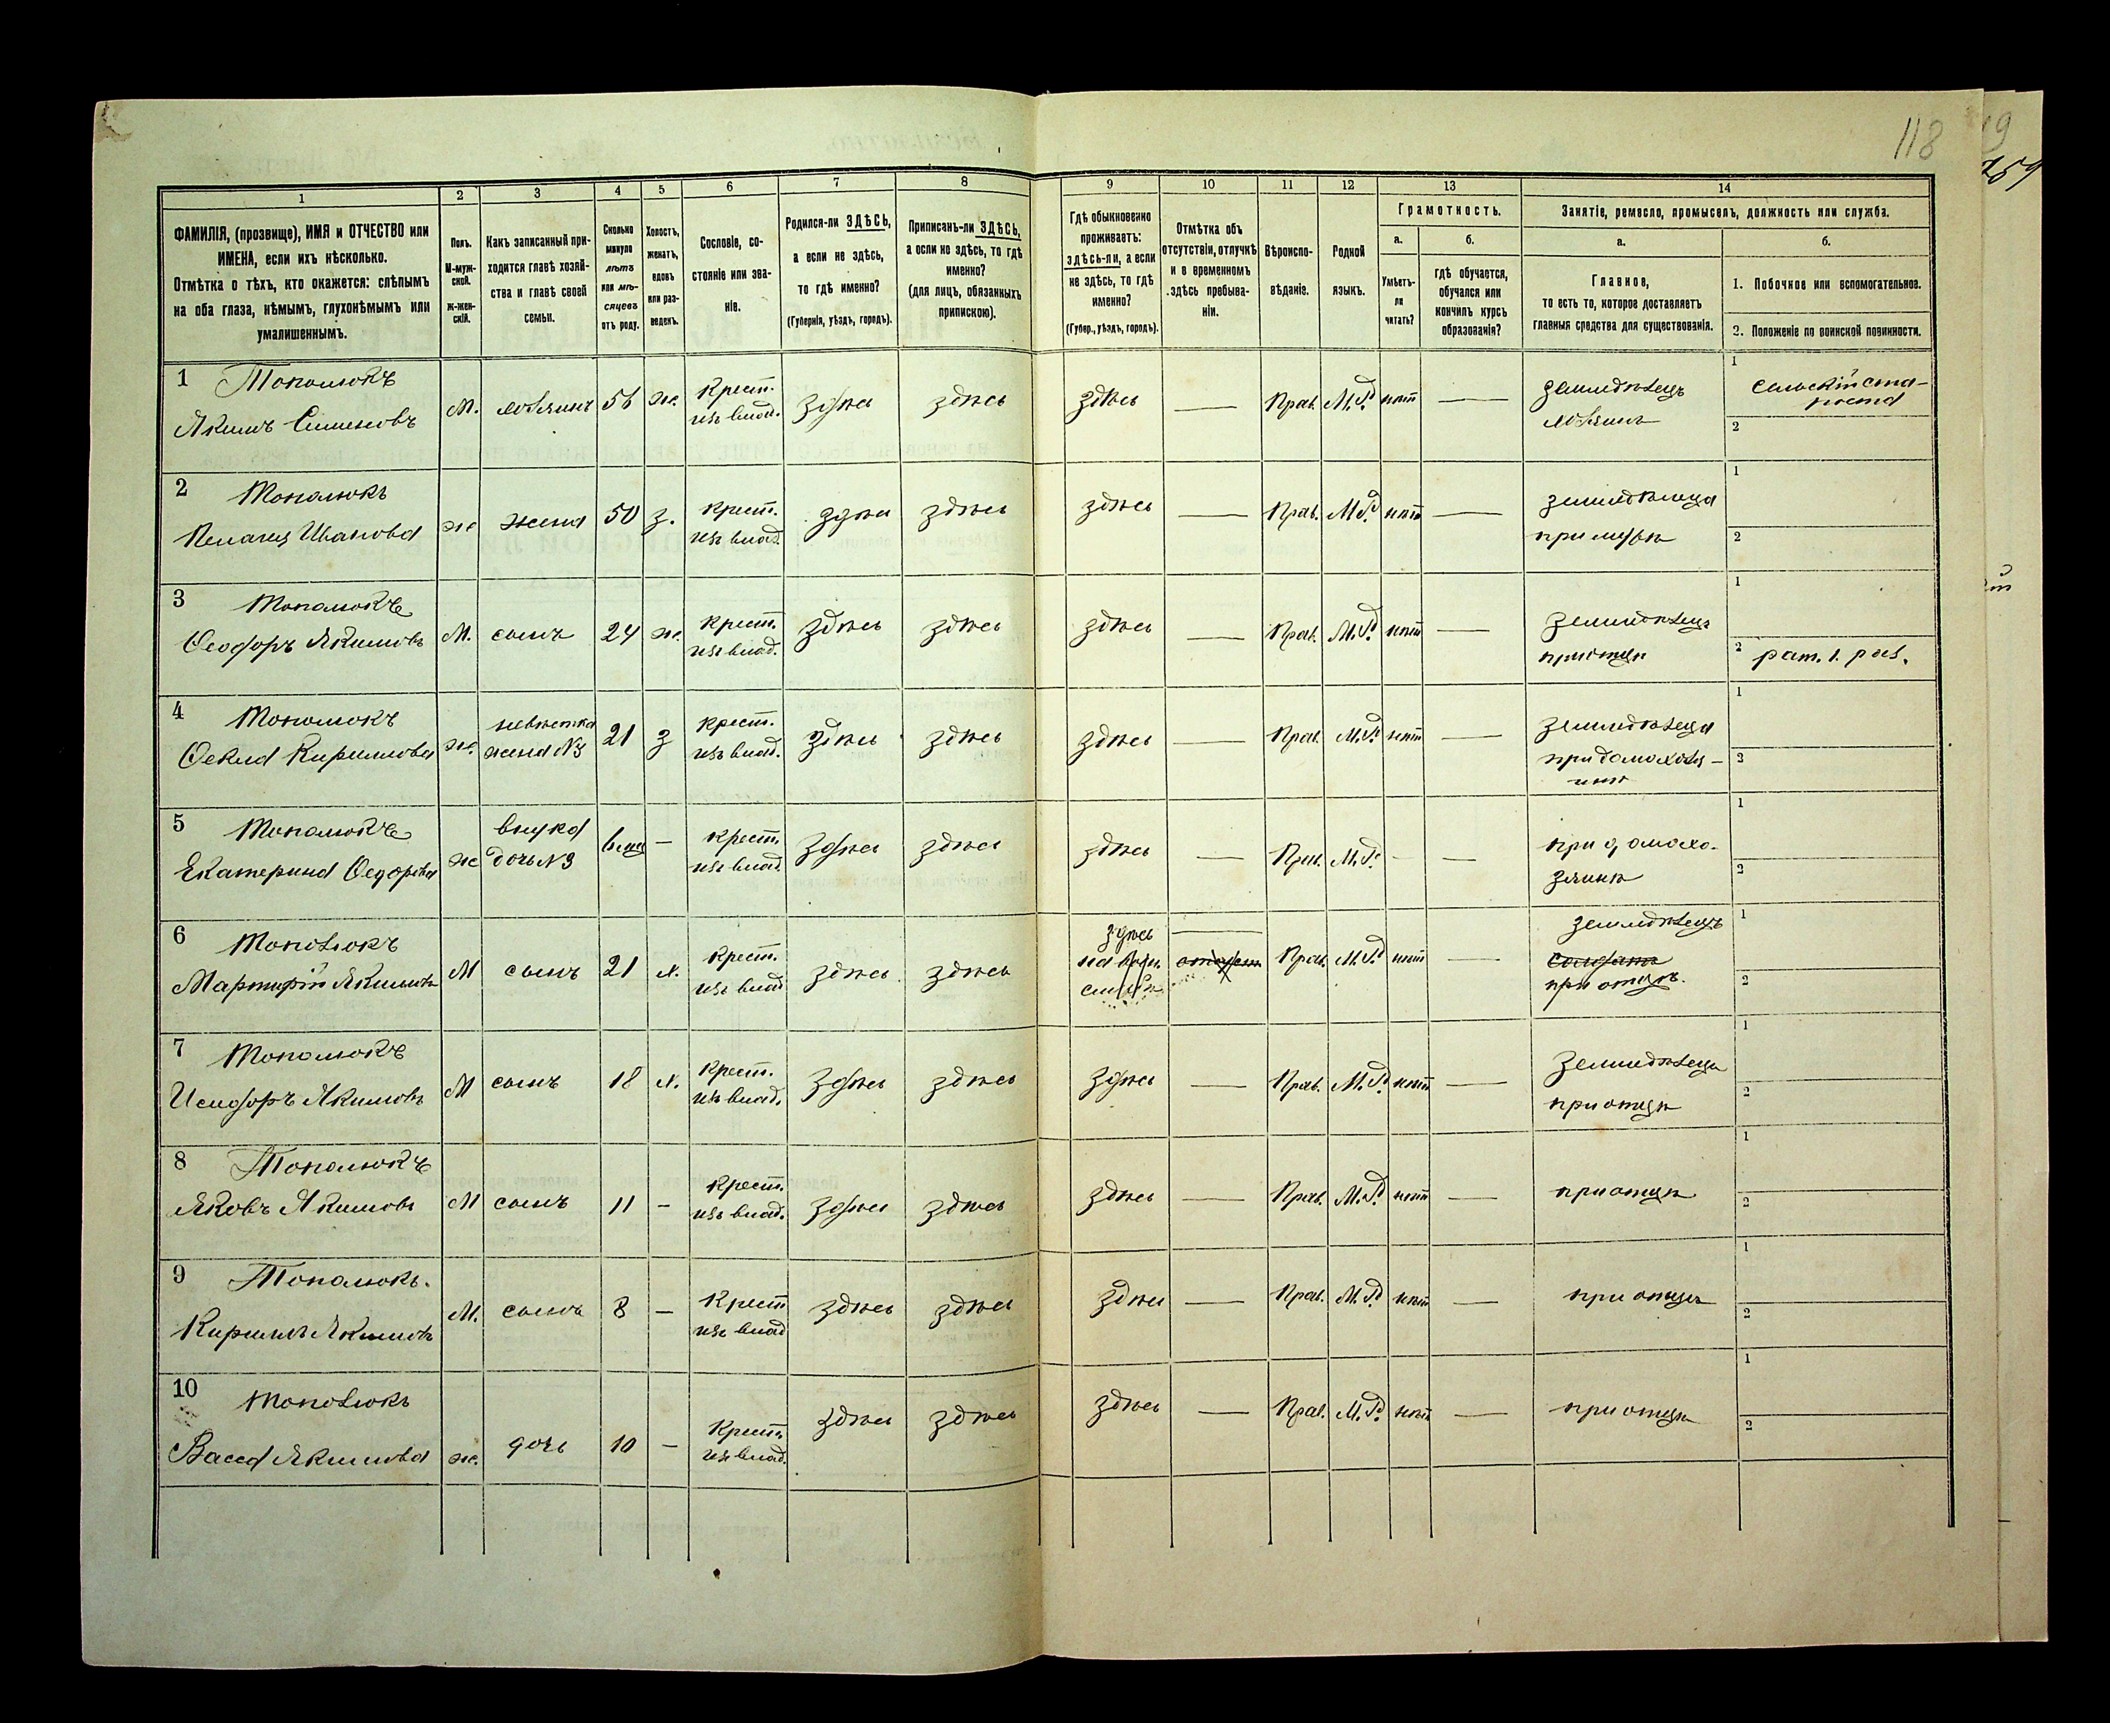 118
19
259
1
2
3
4
5
6
7
8
9
10
11
12
13
14
ФАМИЛІЯ, (прозвище), ИМЯ и ОТЧЕСТВО или
ИМЕНА, если ихъ нѣсколько.
Отмѣтка о тѣхъ, кто окажется: слѣпымъ
на оба глаза, нѣмымъ, глухонѣмымъ или
умалишеннымъ.
Полъ.
М-муж-
ской.
ж-жен-
скій.
Какъ записанный при-
ходится главѣ хозяй-
ства и главѣ своей
семьи.
Сколько
минуло
лѣтъ
или мѣ-
сяцевъ
отъ роду.
Холостъ,
женатъ,
вдовъ
или раз-
веденъ.
Сословіе, со-
стояніе или зва-
ніе.
Родился-ли ЗДѢСЬ,
а если не здѣсь,
то гдѣ именно?
(Губернія, уѣздъ, городъ).
Приписанъ-ли ЗДѢСЬ,
а если не здѣсь, то гдѣ
именно?
(для лицъ, обязанныхъ
припискою).
Гдѣ обыкновенно
проживаетъ:
здѣсь-ли, а если
не здѣсь, то гдѣ
именно?
(Губер., уѣздъ, городъ).
Отмѣтка объ
отсутствіи, отлучкѣ
и о временномъ
здѣсь пребыва-
ніи.
Вѣроиспо-
вѣданіе.
Родной
языкъ.
Грамотность.
а.
Умѣетъ-
ли
читать?
б.
гдѣ обучается,
обучался или
кончилъ курсъ
образованія?
Занятіе, ремесло, промыселъ, должность или служба.
а.
Главное,
то есть то, которое доставляетъ
главныя средства для существованія.
б.
1. Побочное или вспомогательное.
2. Положеніе по воинской повинности.
1 Тополюкъ
Якимъ Сименовъ
м. хозяинъ 56 ж. Крест.
изъ влад. здѣсь здѣсь здѣсь — Прав. М.Р. нѣт —
земледѣлецъ
хозяинъ
1 сельскій ста-
роста
2
2 Тополюкъ
Пелагея Иванова
ж жена 50 з. крест.
изъ влад. здѣсь здѣсь здѣсь — Прав. М.Р. нѣт —
земледѣлица
при мужѣ
1
2
3 Тополюкъ
Ѳеодоръ Якимовъ
М. сынъ 24 ж. крест.
изъ влад. здѣсь здѣсь здѣсь — Прав. М.Р. нѣт —
земледѣлецъ
при отцѣ
1
2 рат. 1. раз.
4 Тополюкъ
Ѳекла Кирилова
ж. невѣстка
жена №3 21 з крест.
изъ влад. здѣсь здѣсь здѣсь — Прав. М.Р. нѣт —
земледѣлеца
при домохозя-
инѣ
1
2
5 Тополюкъ
Екатерина Ѳедорова
ж внука
дочь №3 — крест.
изъ влад. здѣсь здѣсь здѣсь — Прав. М.Р. - —
при домохо-
зяинѣ
1
2
6 Тополюкъ
Мартирій Якимовъ
М сынъ 21 х. крест.
изъ влад здѣсь здѣсь здѣсь
Прав. М.Р. нѣт —
земледѣлецъ
солдатъ
при отцѣ.
1
2
7 Тополюкъ
Исидоръ Якимовъ
М сынъ 18 х. крест.
изъ влад. здѣсь здѣсь здѣсь — Прав. М.Р. нѣт —
земледѣлецъ
при отцѣ
1
2
8 Тополюкъ
Яковъ Якимовъ
М сынъ 11 – крест.
изъ влад. здѣсь здѣсь здѣсь — Прав. М.Р. нѣт —
при отцѣ
1
2
9 Тополюкъ.
Кирилъ Якимовъ
М. сынъ 8 – Крест
изъ влад здѣсь здѣсь здѣсь — Прав. М.Р. нѣт —
при отцѣ
1
2
10 Тополюкъ
Васса Якимова
ж. дочь 10 – Крест.
изъ влад. здѣсь здѣсь здѣсь — Прав. М.Р. нѣт —
при отцѣ
1
2